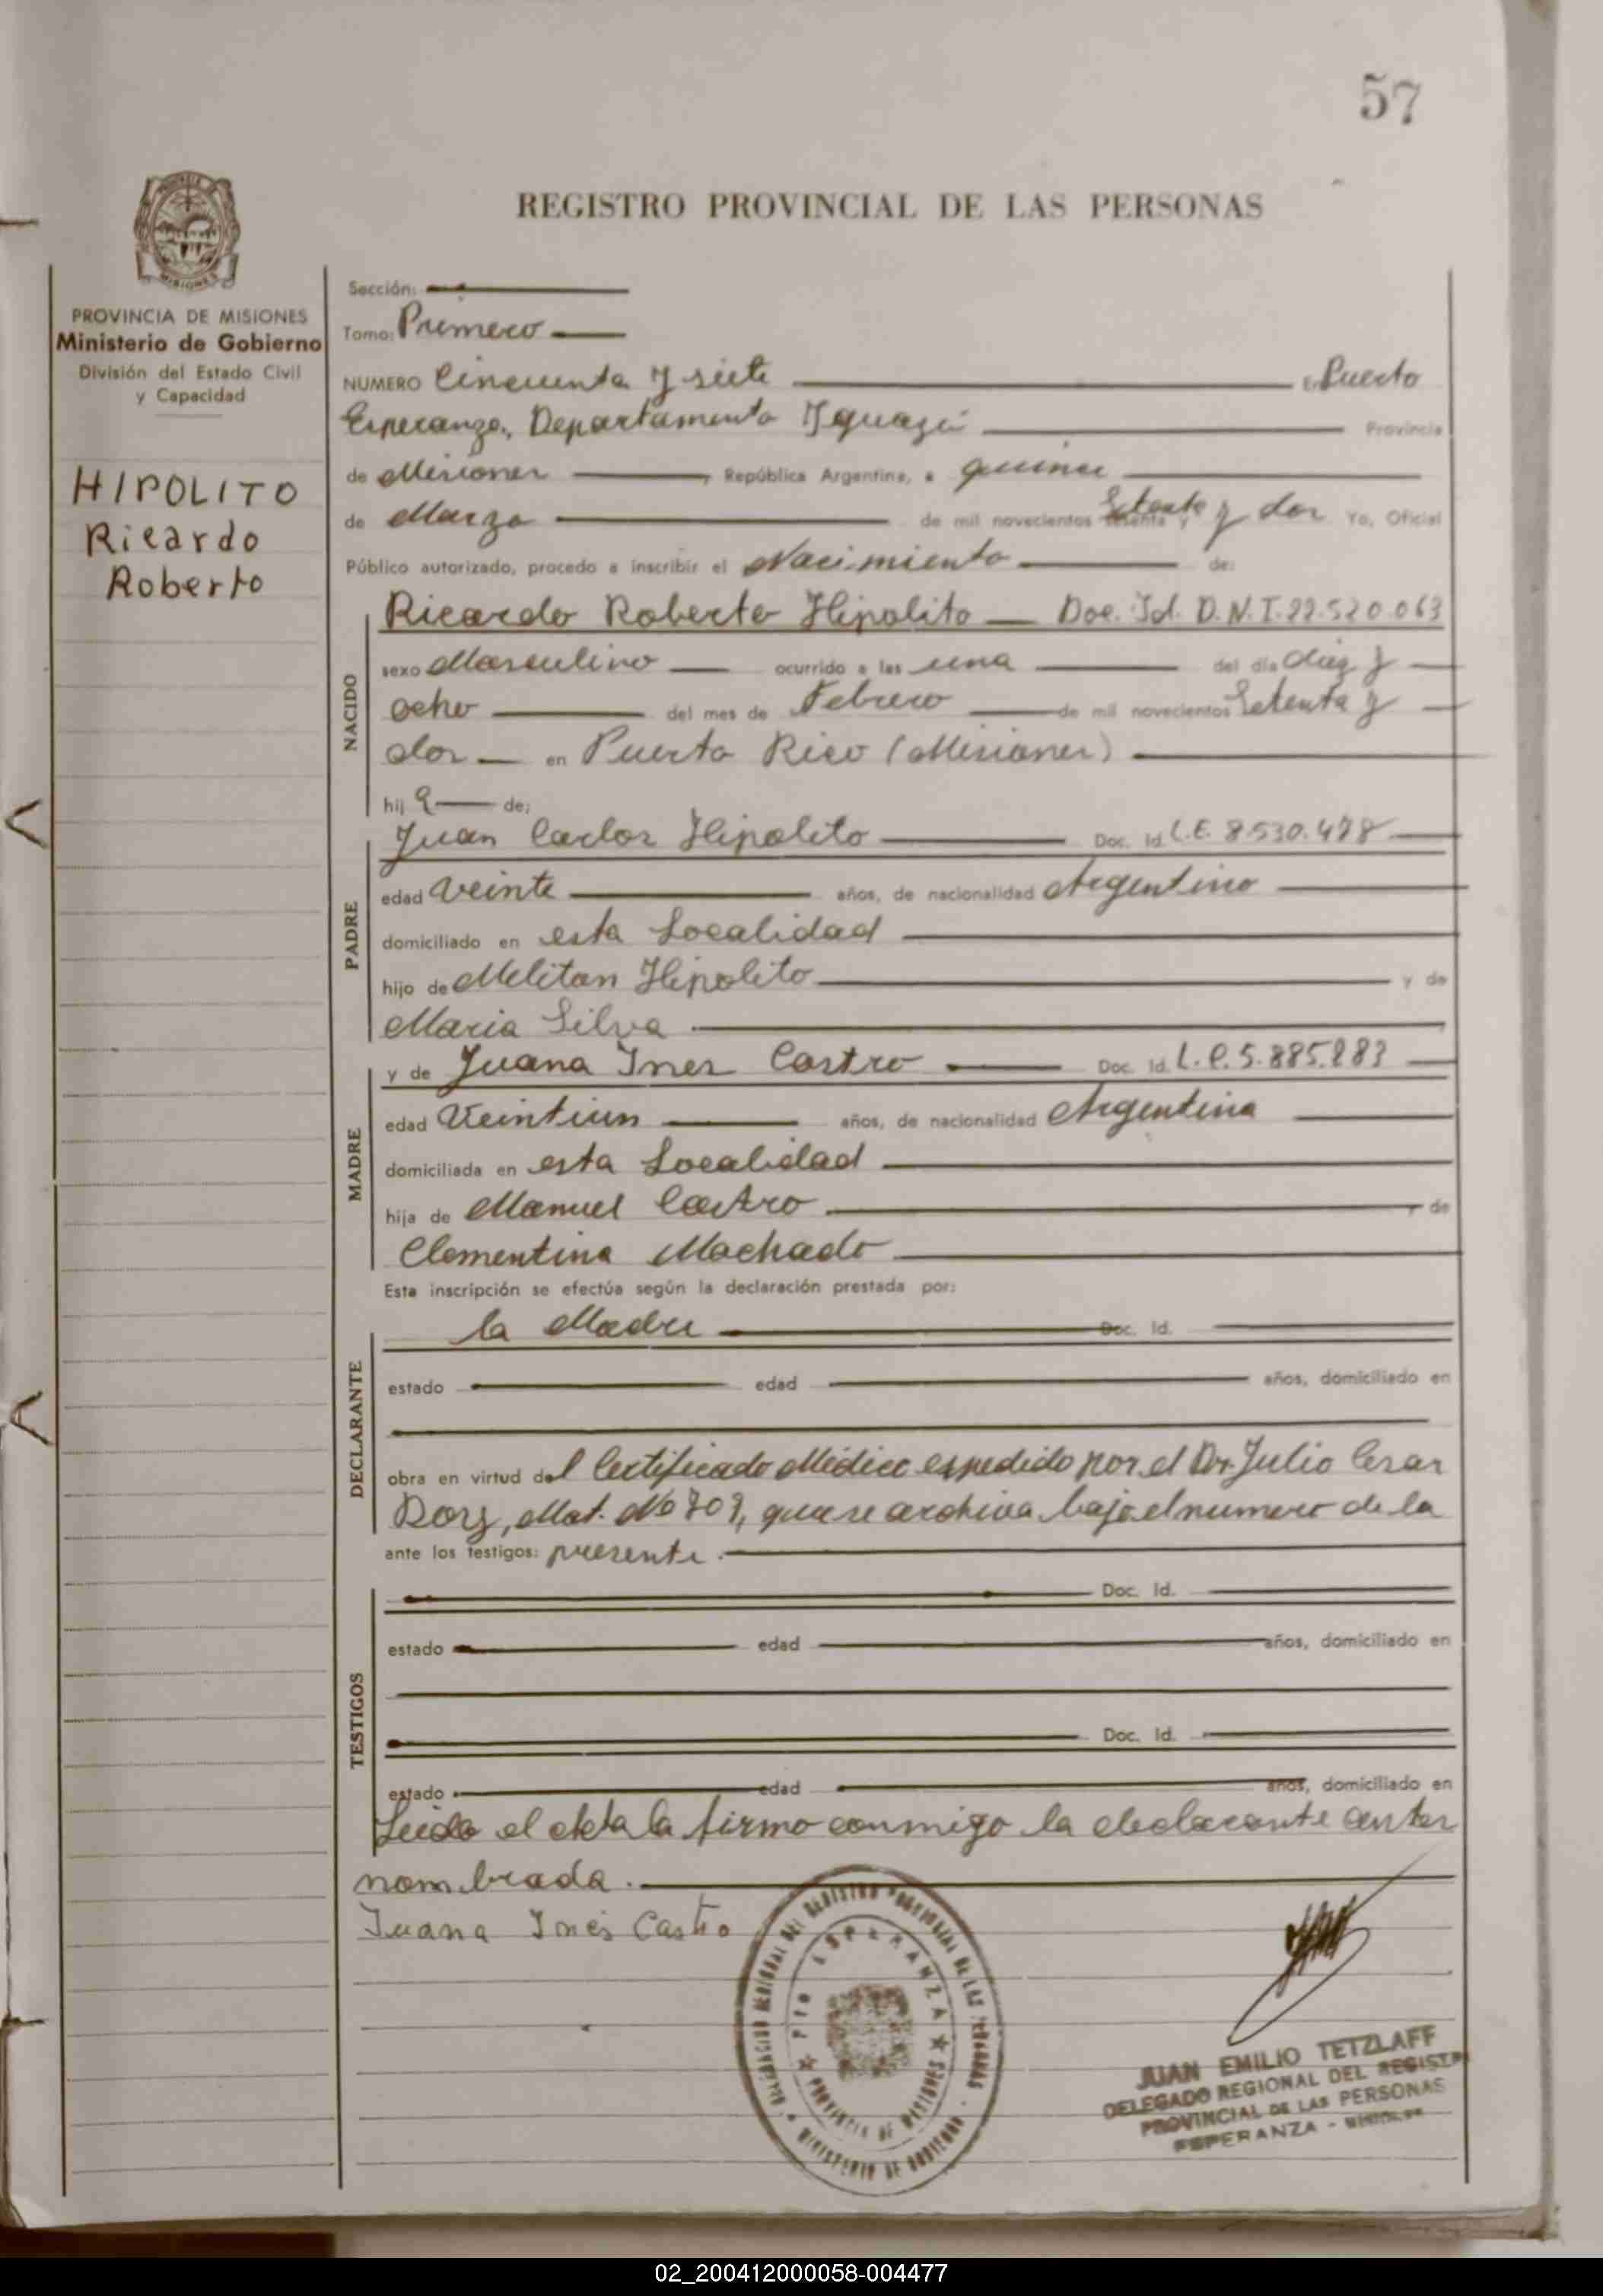 57
PROVINCIA DE MISIONES
Ministerio de Gobierno
División del Estado Civil
y Capacidad
HIPOLITO
Ricardo
Roberto
REGISTRO PROVINCIAL DE LAS PERSONAS
Sección:
Tomo: Primero
NUMERO Cincuenta y siete En Puerto
Esperanza, Departamento Iguazú Provincia
de Misiones, República Argentina, a quince
de Marzo de mil novecientos setenta y Setenta y dos Yo, Oficial
Público autorizado, procedo a inscribir el Nacimiento de:
NACIDO
Ricardo Roberto Hipolito Doc. Id. D.N.I. 22.520.063
sexo Masculino ocurrido a las una del día diez y
ocho del mes de Febrero de mil novecientos Setenta y
dos en Puerto Rico (Misiones)
hij o de:
PADRE
Juan Carlos Hipolito Doc. Id. L.E. 8.530.478
edad veinte años, de nacionalidad Argentino
domiciliado en esta Localidad
hijo de Meliton Hipolito y de
Maria Silva
MADRE
y de Juana Ines Castro Doc. Id. L.C. 5.885.283
edad Veintiun años, de nacionalidad Argentina
domiciliada en esta Localidad
hija de Manuel Castro y de
Clementina Machado
Esta inscripción se efectúa según la declaración prestada por:
DECLARANTE
la Madre Doc. Id.
estado edad años, domiciliado en
obra en virtud del Certificado Médico expedido por el Dr. Julio Cesar
Mat. Nº 709, que se archiva bajo el numero de la
ante los testigos: presente.
TESTIGOS
Doc. Id.
estado edad años, domiciliado en
Doc. Id.
estado edad años, domiciliado en
Leida el acta la firmo conmigo la declarante antes
nombrada.
Juana Inés Castro
DELEGACION REGIONAL DEL REGISTRO PROVINCIAL DE LAS PERSONAS
MINISTERIO DE GOBIERNO
PTO ESPERANZA
PROVINCIA DE MISIONES
JUAN EMILIO TETZLAFF
DELEGADO REGIONAL DEL REGISTRO
PROVINCIAL DE LAS PERSONAS
ESPERANZA - MISIONES
02_200412000058-004477